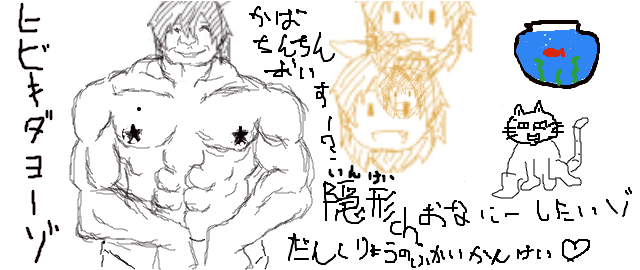 ヒビキダヨーゾ
かば
ちんちん
おいすー?
いんけい
隠形chおなにーしたいゾ
だんくりょうのふかいかんけい♡